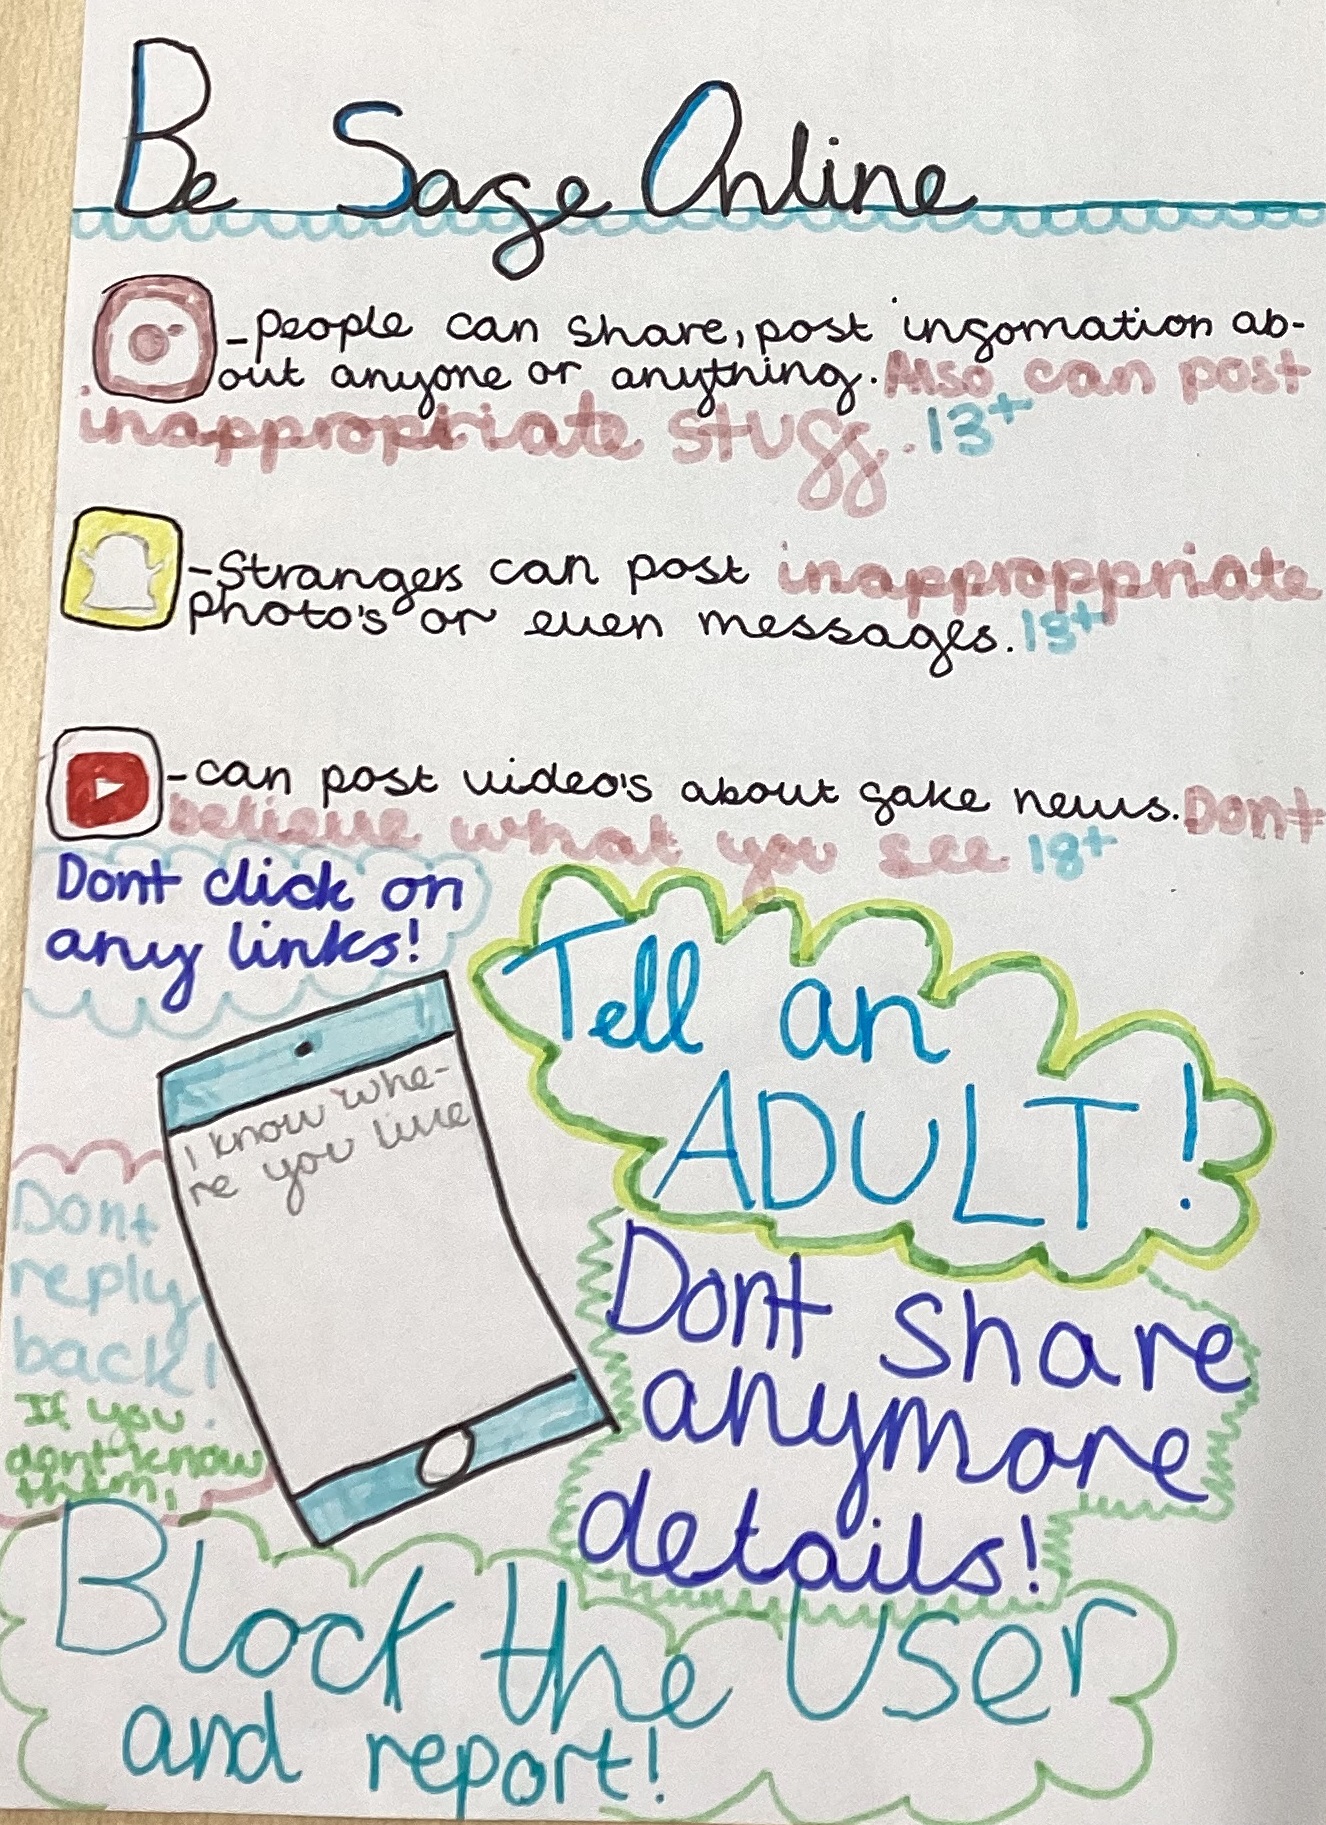 Be Safe Online
-people can share, post infomation ab-
out anyone or anything. Also can post
inappropriate stuff. 13+
-Strangers can post inapproppriate
photo's or even messages. 13+
-can post video's about fake news. Dont
believe what you see 18+
Dont click on
any links!
Tell an
ADULT!
I know whe-
re you live
Dont
reply
back!
If you
dont know
them,
Dont share
anymore
details!
Block the User
and report!